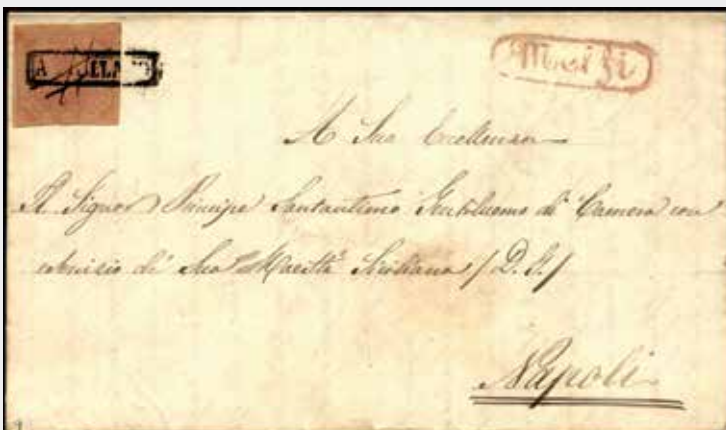 ANNULLATO
Melfi
A Sua Eccellenza
Il Signor Principe Santantimo Gentiluomo di Camera con
esercizio di Sua Maestà Siciliana / D. G. /
Napoli